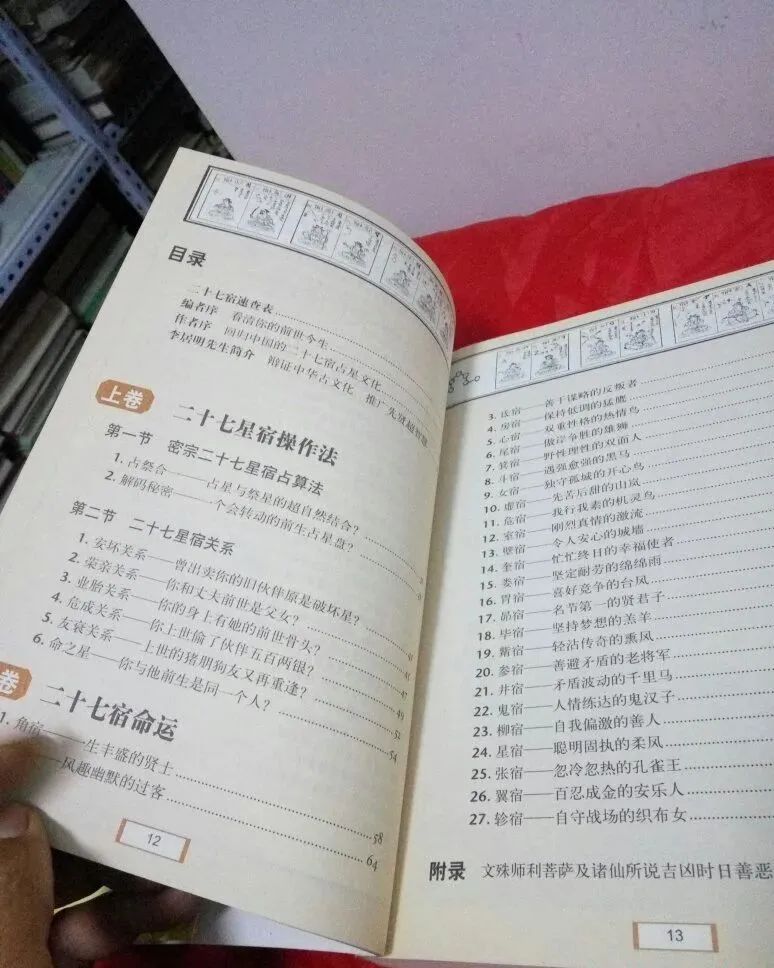 目录
二十七宿速查表
编者序 看清你的前世今生
作者序 回归中国的二十七宿占星文化
李居明先生简介 辩证中华古文化 推广先贤超智慧
上卷 二十七星宿操作法
第一节 密宗二十七星宿占算法
1. 占祭合——占星与祭星的超自然结合?
2. 解码秘密——一个会转动的前生占星盘?
第二节 二十七星宿关系
1. 安坏关系——曾出卖你的旧伙伴原是破坏星?
2. 荣亲关系——你和丈夫前世是父女?
3. 业胎关系——你的身上有她的前世骨头?
4. 危成关系——你上世偷了伙伴五百两银? 47
5. 友衰关系——上世的猪朋狗友又再重逢? 49
6. 命之星——你与他前生是同一个人? 52
54
卷 二十七宿命运
1. 角宿——一生丰盛的贤士 58
——风趣幽默的过客 64
12
3. 氐宿——善于谋略的反叛者
4. 房宿——保持低调的猛鹰
5. 心宿——双重性格的热情鸟
6. 尾宿——傲岸争胜的雄狮
7. 箕宿——野性理性的双面人
8. 斗宿——遇强愈强的黑马
9. 女宿——独守孤城的开心鸟
10. 虚宿——先苦后甜的山岚
11. 危宿——我行我素的机灵鸟
12. 室宿——刚烈真情的激流
13. 壁宿——令人安心的城墙
14. 奎宿——忙忙终日的幸福使者
15. 娄宿——坚定耐劳的绵绵雨
16. 胃宿——喜好竞争的台风
17. 昴宿——名节第一的贤君子
18. 毕宿——坚持梦想的羔羊
19. 觜宿——轻沾传奇的熏风
20. 参宿——善避矛盾的老将军
21. 井宿——矛盾波动的千里马
22. 鬼宿——人情练达的鬼汉子
23. 柳宿——自我偏激的善人
24. 星宿——聪明固执的柔风
25. 张宿——忽冷忽热的孔雀王
26. 翼宿——百忍成金的安乐人
27. 轸宿——自守战场的织布女
附录 文殊师利菩萨及诸仙所说吉凶时日善恶
13